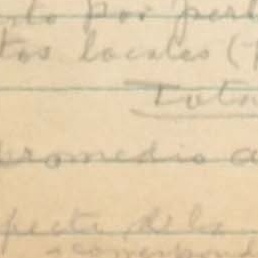 to por per
tos locales (
Tota
promedio a
pecta dela
corresponde